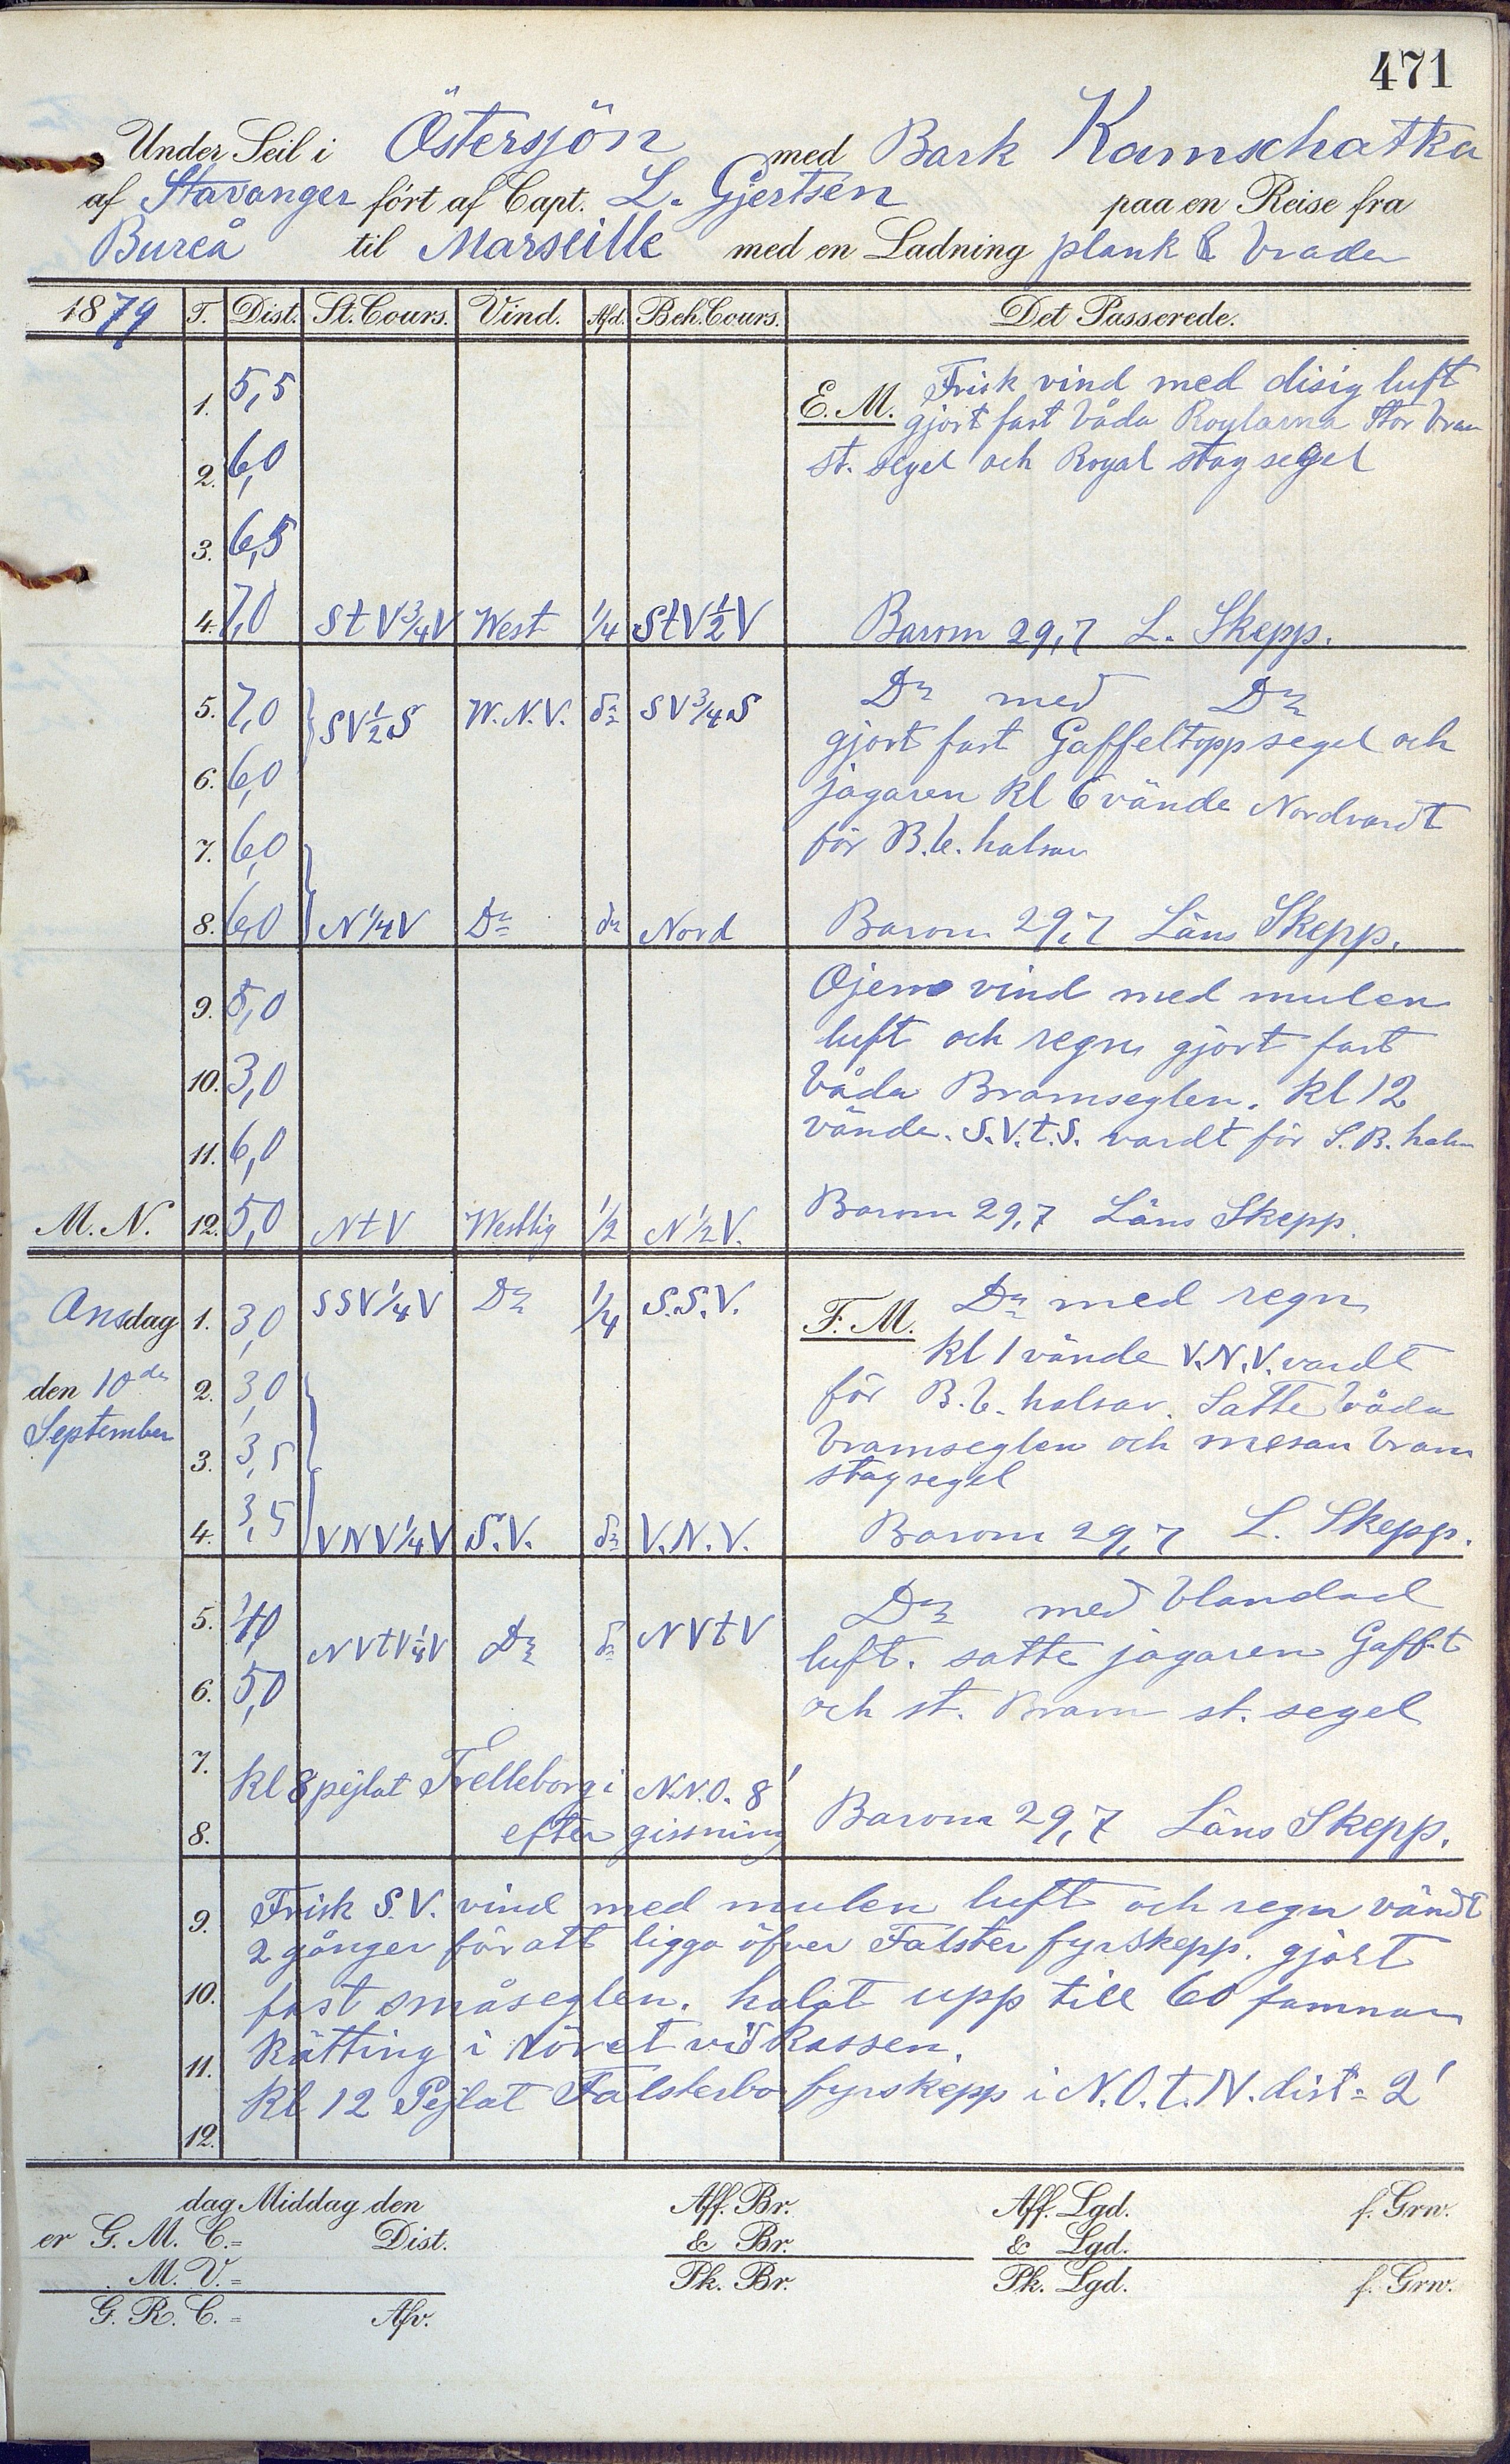 471
Under Seil i Östersjön med Bark Kamschatka
af Stavanger fört af Capt. L. Gjertsen paa en Reise fra
Bureå til Marseille med en Ladning plank & brader
1879 T. Dist. St. Cours. Vind. Afd. Beh. Cours. Det Passerede.
1. 5,5 E. M. Frisk vind med disig luft
gjort fast båda Roylarna Stor bram
2. 6,0 st. segel och Royal stag segel
3. 6,5
4. 7,0 St V 3/4 V West 1/4 St V 1/2 V Barom 29,7 L. Skepp.
5. 7,0 SV 1/2 S W.N.V. do SV 3/4 S Do med Do
gjort fast Gaffeltoppsegel och
6. 6,0 jagaren kl 6 vände Nordvardt
7. 6,0 för B.b. halsar
8. 6,0 N 1/4 V Do do Nord Barom 29,7 Läns Skepp.
9. 5,0 Ojemn vind med mulen
luft och regn gjort fast
10. 3,0 båda Bramseglen. kl 12
11. 6,0 vände. S.V.t.S. vardt för S.B. hals
M. N. 12. 5,0 NtV Westlig 1/2 N 1/2 V. Barom 29,7 Läns Skepp.
Onsdag 1. 3,0 SSV 1/4 V Do 1/4 S.S.V. F. M. Do med regn
kl 1 vände V.N.V. vardt
den 10de 2. 3,0 för B.b. halsar. Satte båda
September 3. 3,5 bramseglen och mesan bram
stagsegel
4. 3,5 VNV 1/4 V S.V. do V.N.V. Barom 29,7 L. Skepp.
5. 4,0 NVtV 1/4 V Do do NVtV Do med blandad
luft. satte jagaren Gaff.t
6. 5,0 och st. Bram st. segel
7. kl 8 pejlat Trelleborg i N.N.O. 8'
8. efter gissning Barom 29,7 Läns Skepp.
9. Frisk S.V. vind med mulen luft och regn vändt
2 gånger för att ligga öfver Falster fyrskepp. gjort
10. fast småseglen. halat upp till 60 famnar
11. Kätting i röret vid kassen.
Kl 12 Pejlat Falsterbo fyrskepp i N.O.t.N. dist = 2'
12.
dag Middag den Aff. Br. Aff. Lgd. f. Grw.
er G. M. C. = Dist. & Br. & Lgd.
M. V. = Pk. Br. Pk. Lgd. f. Grw.
G. R. C. = Afv.